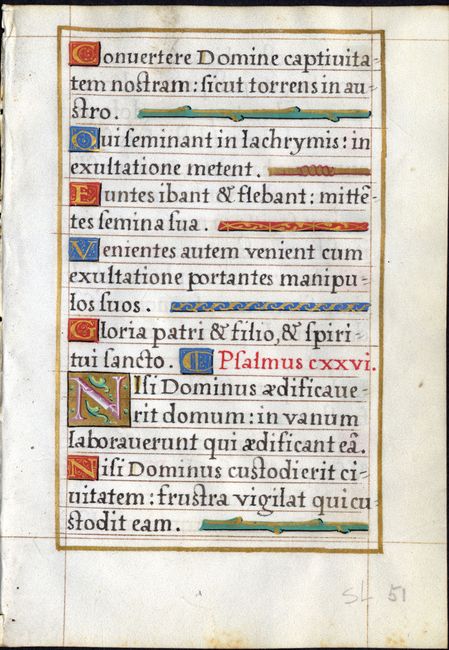 Conuertere Domine captiuita=
tem nostram: sicut torrens in au=
stro.
Qui seminant in lachrymis: in
exultatione metent.
Euntes ibant & flebant: mittē=
tes semina sua.
Venientes autem venient cum
exultatione portantes manipu=
los suos.
Gloria patri & filio, & spiri=
tui sancto. Psalmus cxxvi.
NIsi Dominus ædificaue=
rit domum: in vanum
laborauerunt qui ædificant eā.
Nisi Dominus custodierit ci=
uitatem: frustra vigilat qui cu=
stodit eam.
SL 51